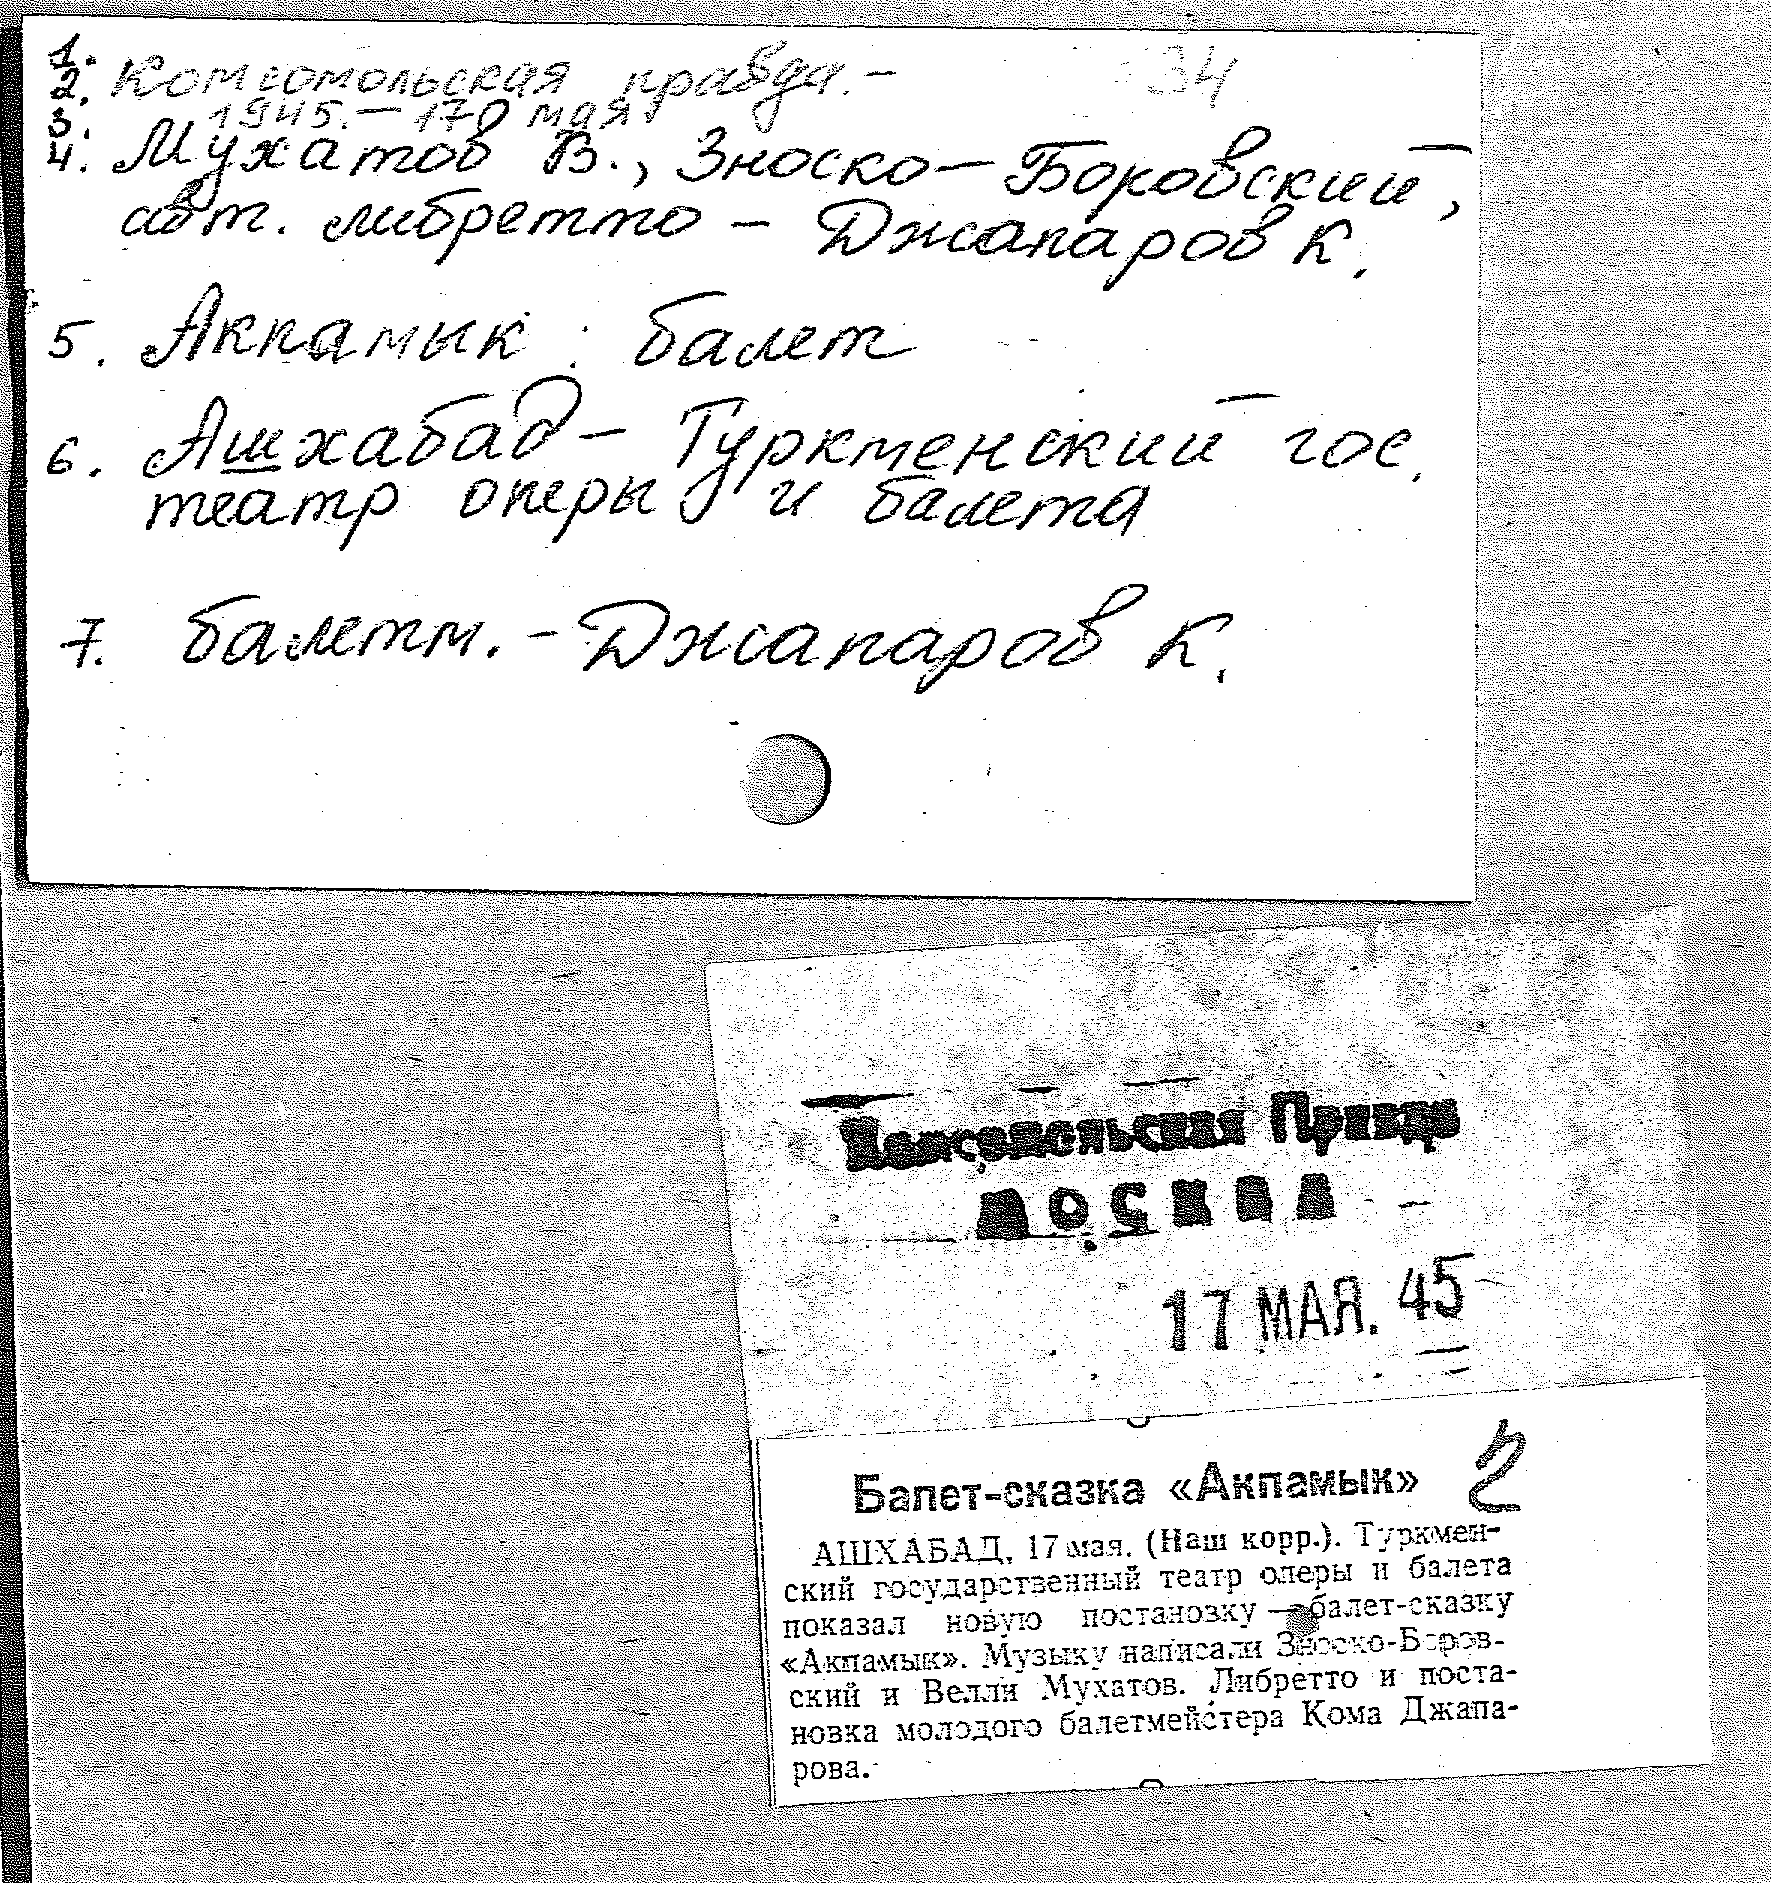 1.
2. Комсомольская правда. – 34
3. 1945. – 17 мая
4. Мухатов В., Зноско-Боровский,
авт. либретто – Джапаров К.
5. Акпамык : балет
6. Ашхабад – Туркменский гос.
театр оперы и балета
7. балетм. – Джапаров К.
Комсомольская Правда
МОСКВА
17 МАЯ. 45
Балет-сказка «Акпамык» 2
АШХАБАД, 17 мая. (Наш корр.). Туркмен-
ский государственный театр оперы и балета
показал новую постановку — балет-сказку
«Акпамык». Музыку написали Зноско-Боров-
ский и Велли Мухатов. Либретто и поста-
новка молодого балетмейстера Кома Джапа-
рова.